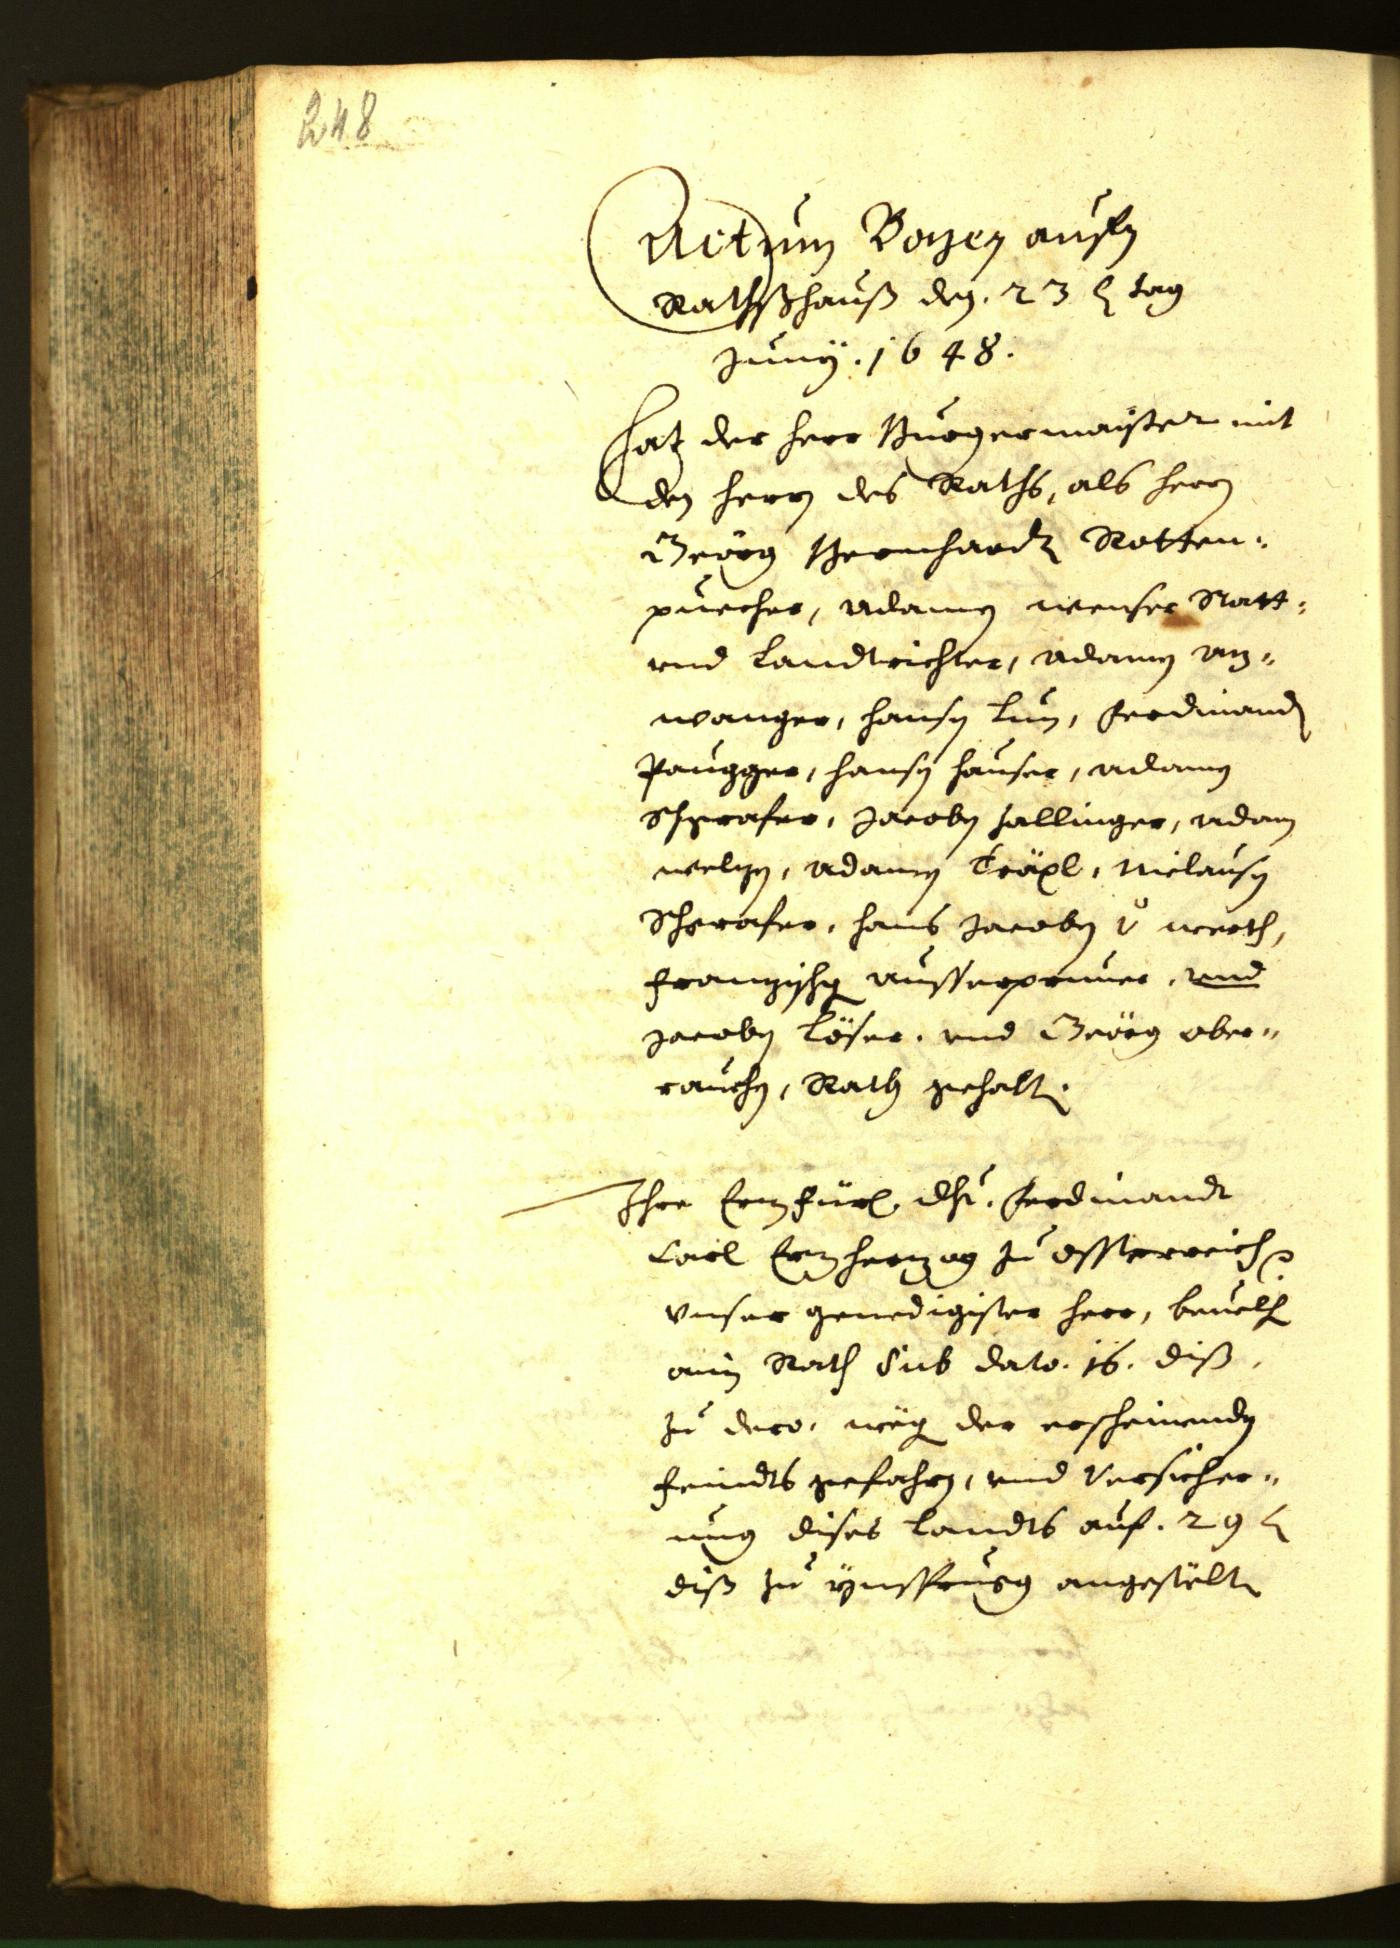 248
Actum Bozen aufm
Rathßhauß den. 23 tag
Juny. 1648.
Hat der Herr Burgermaister mit
den Herrn des Raths, als Herrn
Georg Bernhardt Rotten-
puecher, Adamen Wenser Statt-
und Landtrichter, Adamen An-
wanger, Hansen Lun, Ferdinand
Paugger, Hansen Hauser, Adamen
Schgrafer, Jacoben Hallinger, Adam
Welzen, Adamen Träxl, Niclausen
Schgrafer, Hans Jacoben v Werth,
Franzischg Ausserprunner, und
Jacoben Löser. und Georg Ober-
rauchen, Rath gehalt.
Ihre Erzfürl. Dht. Ferdinandt
Carl Erzherzog zu Össterreich
Unser genedigister Herr, bevelch
ain Rath Sub dato. 16. diß.
zu dero. weg der erscheinenden
feindts gefahrn, und Versicher-
ung dises Landts auf. 29
diß zu Ynssprugg angestelt